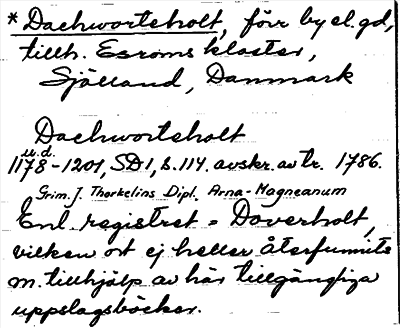 * Dachwortsholt, förr by el. gd,
tillh. Esroms kloster,
Sjölland, Danmark
Dachwortsholt
u.d.
1178-1201, SD 1, s. 114. avskr. av tr. 1786.
Grim. J. Thorkelins Dipl. Arna-Magneanum
Enl. registret = Doverholt,
vilken ort ej heller återfunnits
m. tillhjälp av här tillgängliga
uppslagsböcker.